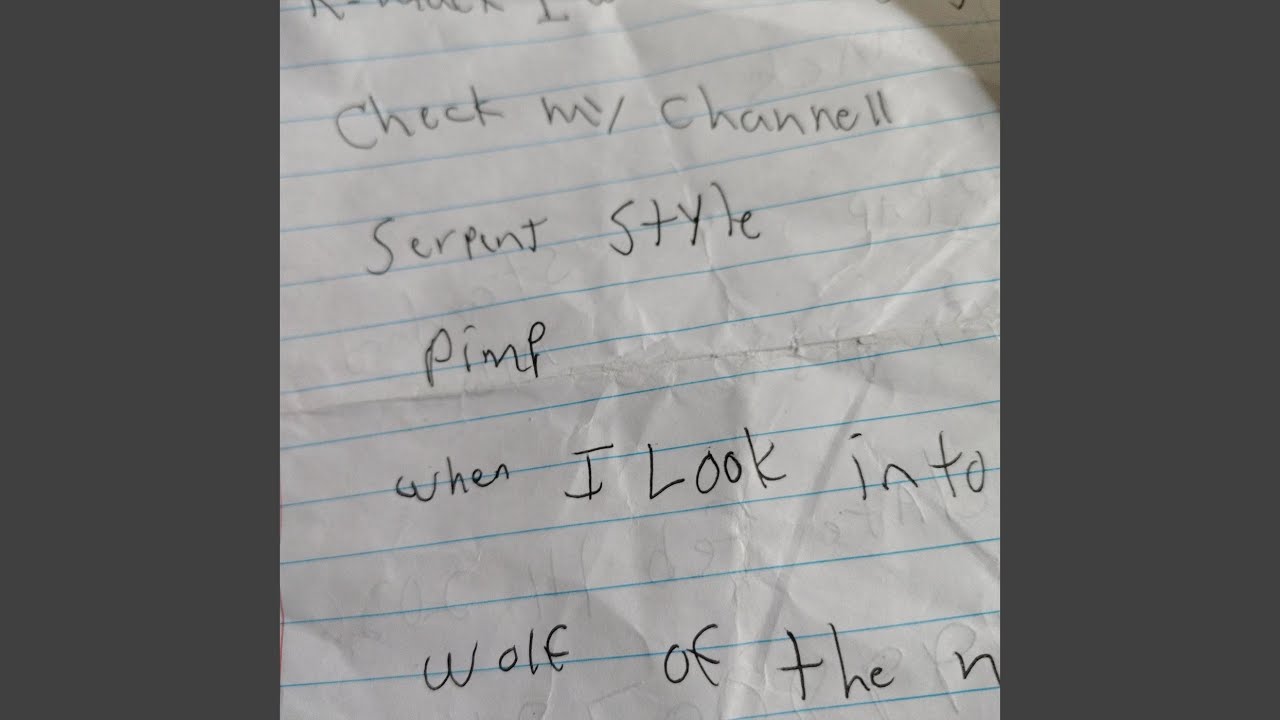 Check my Channell
Serpent Style
Pimp
when I Look into
wolf of the n